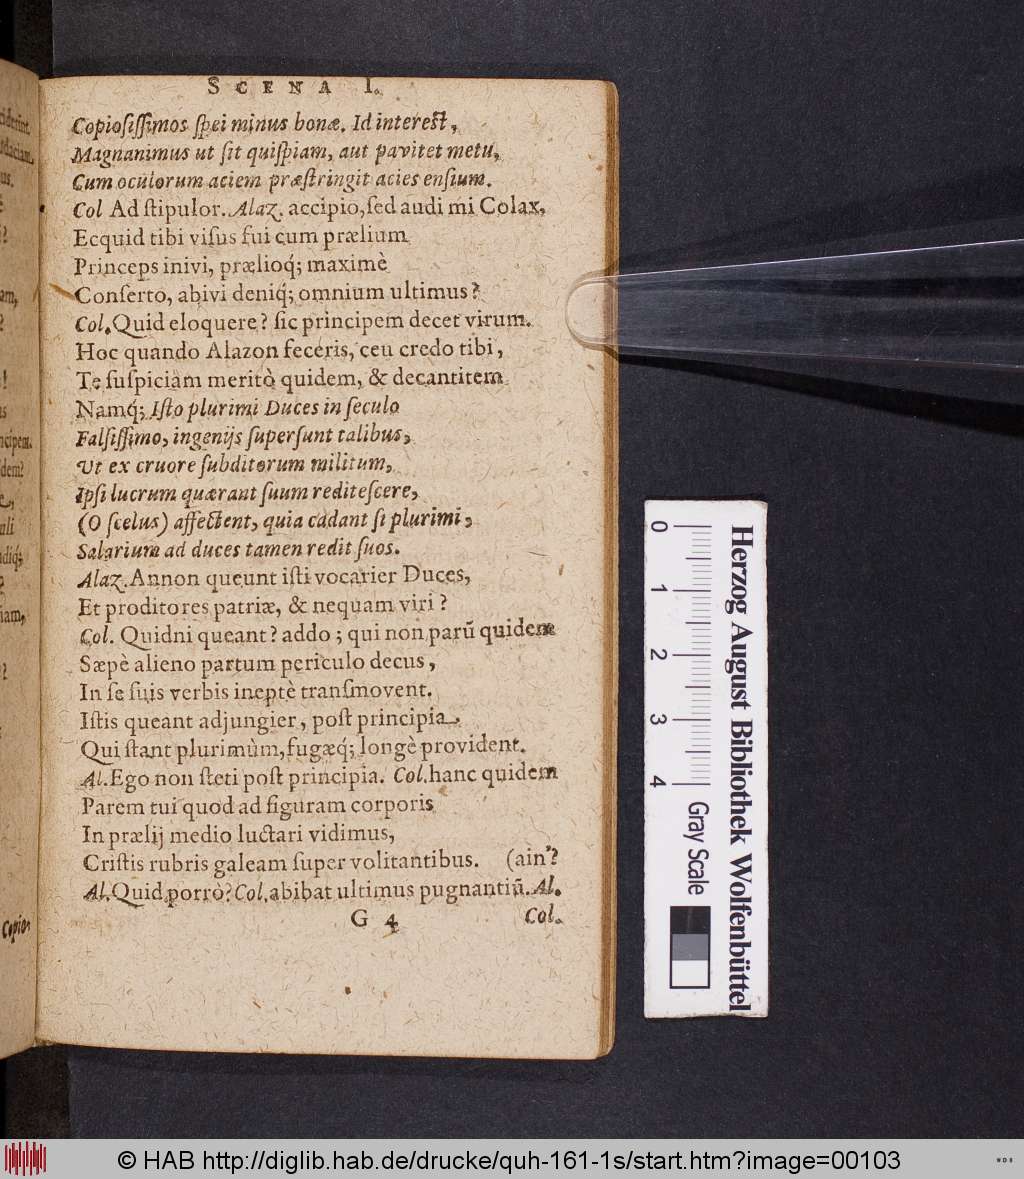 SCENA I.
Copiosiſſimos ſpei minus bonæ. Id intereſt,
Magnanimus ut ſit quiſpiam, aut pavitet metu,
Cum oculorum aciem præſtringit acies enſium.
Col Ad ſtipulor. Alaz. accipio, ſed audi mi Colax,
Ecquid tibi viſus fui cum prælium
Princeps inivi, prælioq́; maximè
Conferto, abivi deniq́; omnium ultimus?
Col. Quid eloquere? ſic principem decet virum.
Hoc quando Alazon feceris, ceu credo tibi,
Te ſuſpiciam meritò quidem, & decantitem
Namq́; Iſto plurimi Duces in ſeculo
Falſiſſimo, ingenijs ſuperſunt talibus,
Ut ex cruore ſubditorum militum,
Ipſi lucrum quærant ſuum rediteſcere,
(O ſcelus) affectent, quia cadant ſi plurimi,
Salarium ad duces tamen redit ſuos.
Alaz. Annon queunt iſti vocarier Duces,
Et proditores patriæ, & nequam viri?
Col. Quidni queant? addo; qui non parũ quidem
Sæpè alieno partum periculo decus,
In ſe ſuis verbis ineptè tranſmovent.
Iſtis queant adjungier, poſt principia
Qui ſtant plurimùm, fugæq́; longè provident.
Al. Ego non ſteti poſt principia. Col. hanc quidem
Parem tui quod ad figuram corporis
In prælij medio luctari vidimus,
Criſtis rubris galeam ſuper volitantibus. (ain'?
Al. Quid porrò? Col. abibat ultimus pugnantiũ. Al.
G 4 Col.
Copio-
0 1 2 3 4
Gray Scale
Herzog August Bibliothek Wolfenbüttel
© HAB http://diglib.hab.de/drucke/quh-161-1s/start.htm?image=00103